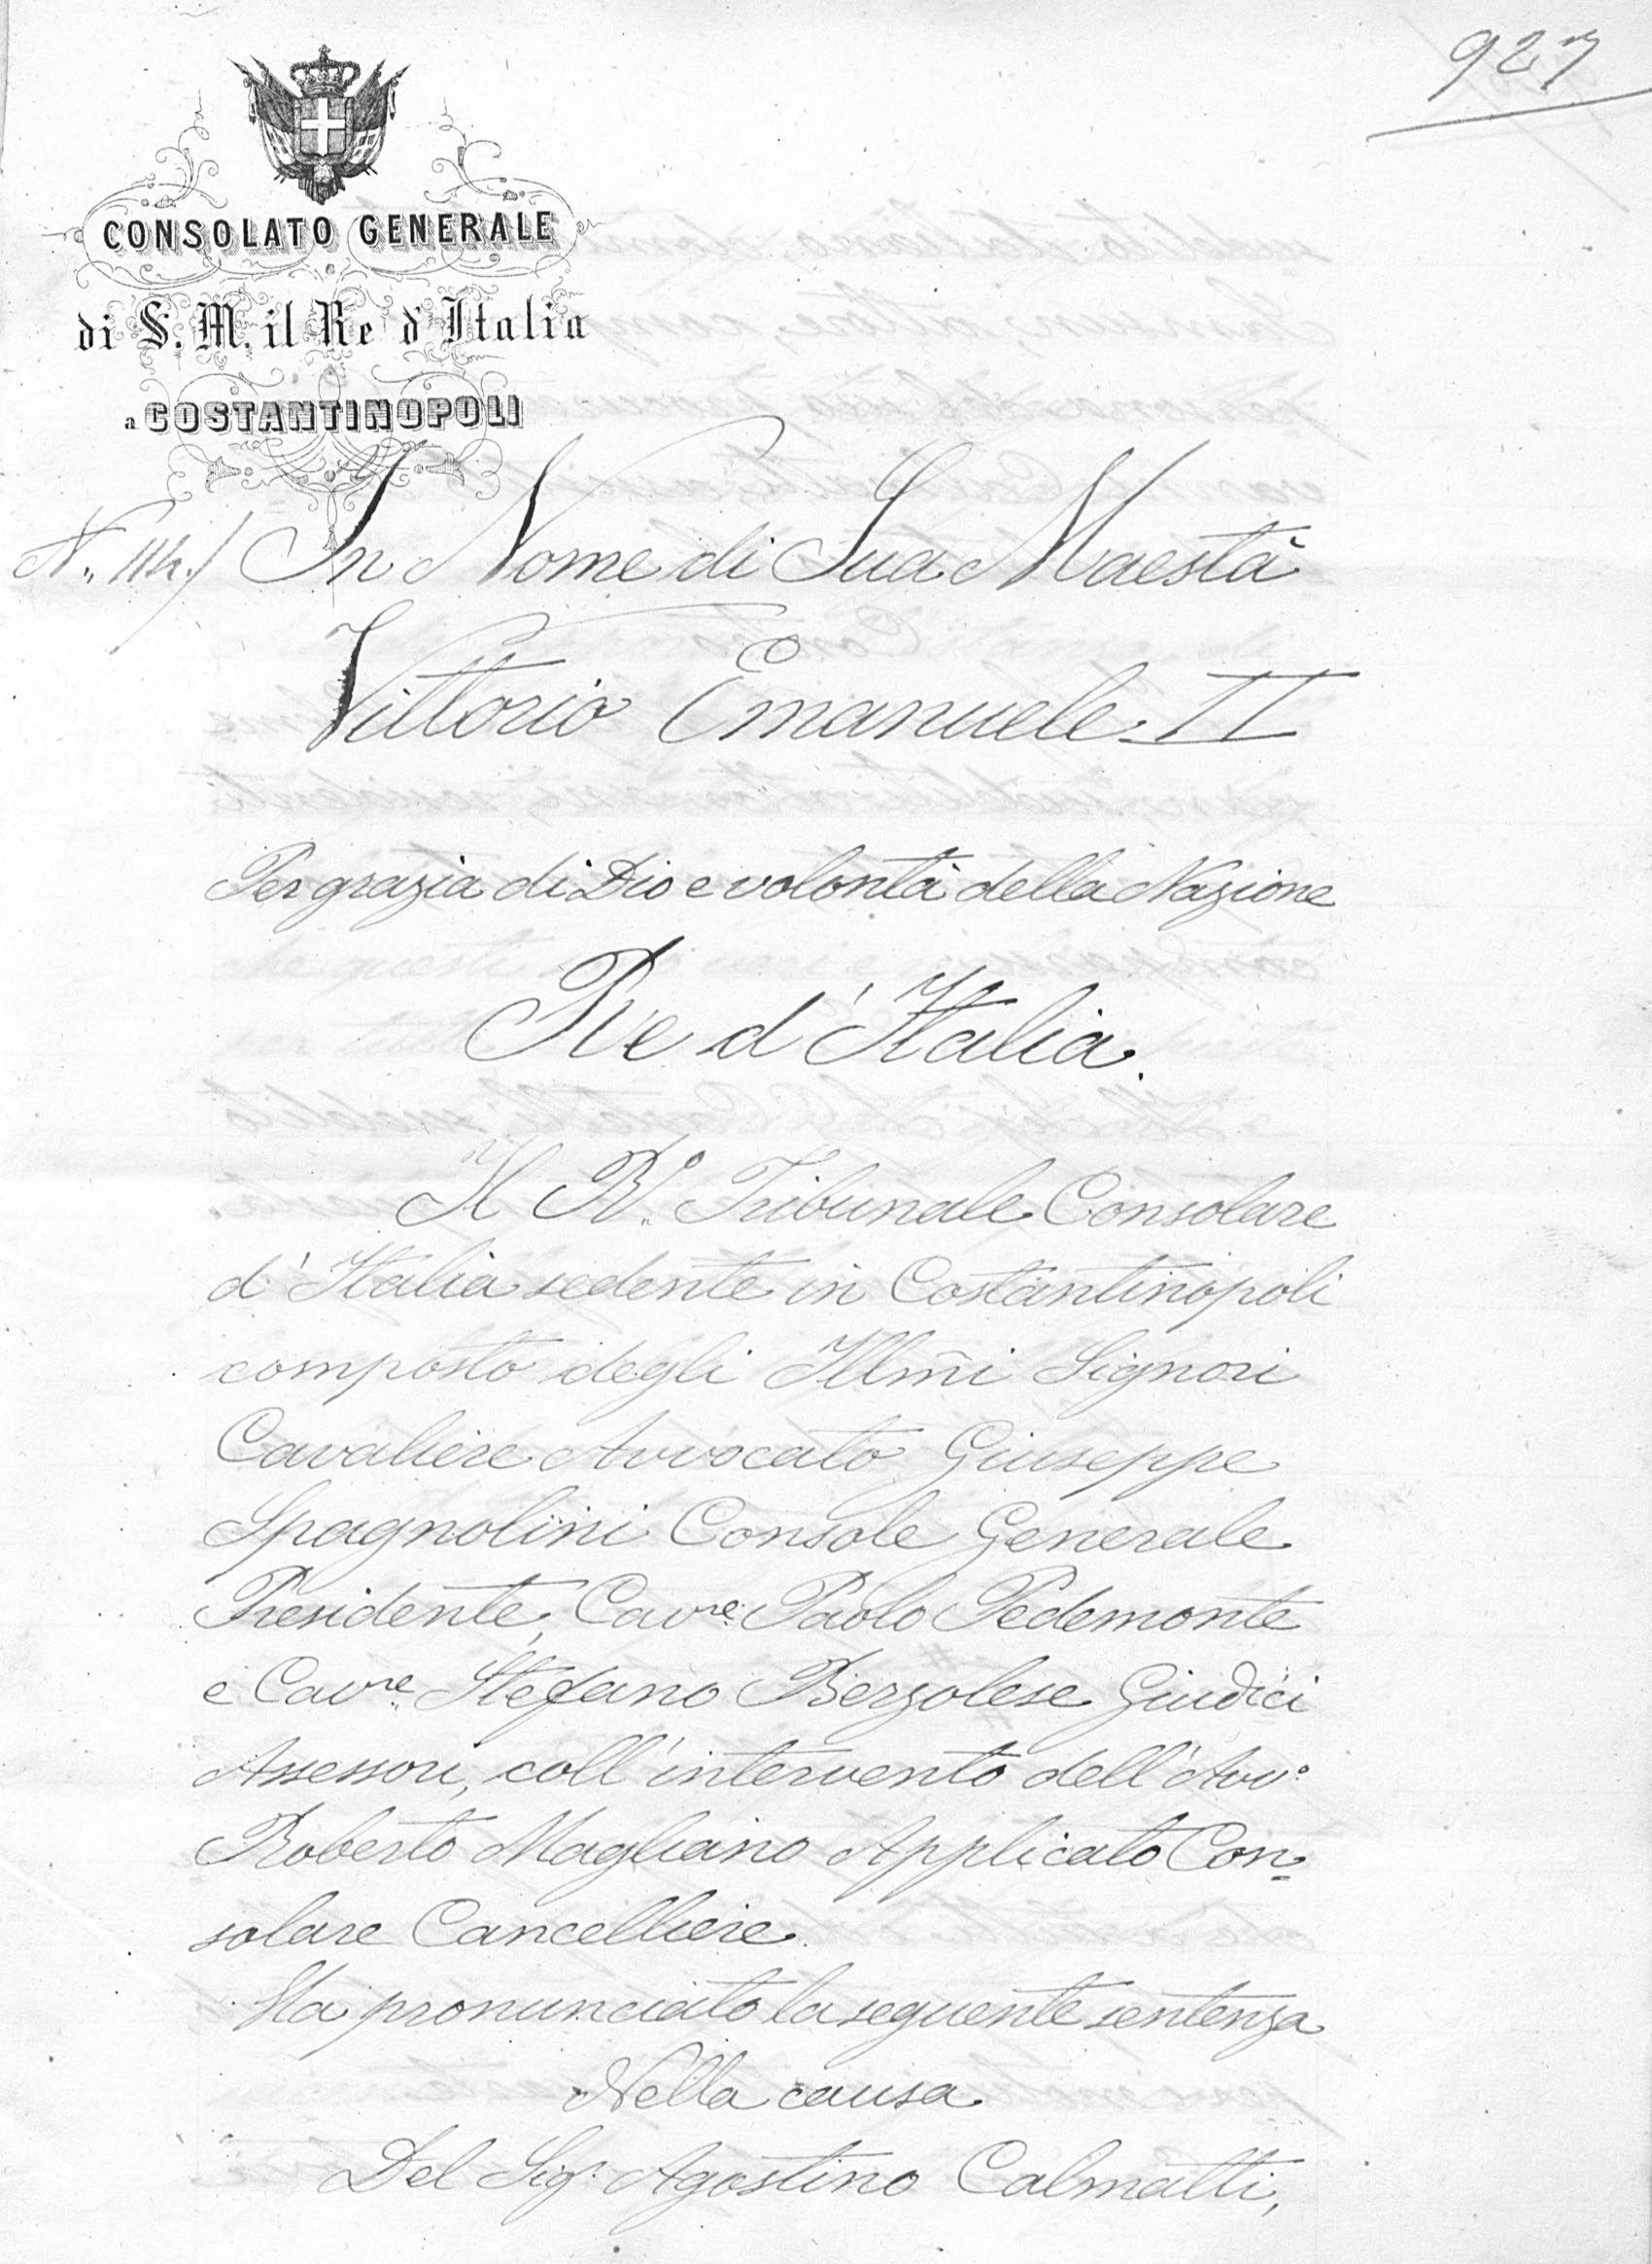 927
CONSOLATO GENERALE
di S. M. il Re d'Italia
a COSTANTINOPOLI
N. 114./ In Nome di Sua Maestà
Vittorio Emanuele II
Per grazia di Dio e volontà della Nazione
Re d'Italia.
Il R.° Tribunale Consolare
d'Italia sedente in Costantinopoli
composto degli Illm̃i Signori
Cavaliere Avvocato Giuseppe
Spagnolini Console Generale
Presidente, Cav.re Paolo Pedemonte
e Cav.re Stefano Berzolese Giudici
Assessori, coll'intervento dell'Avv.°
Roberto Magliano Applicato Con=
solare Cancelliere.
Ha pronunciato la seguente sentenza
Nella causa
Del Sig.r Agostino Calmatti,